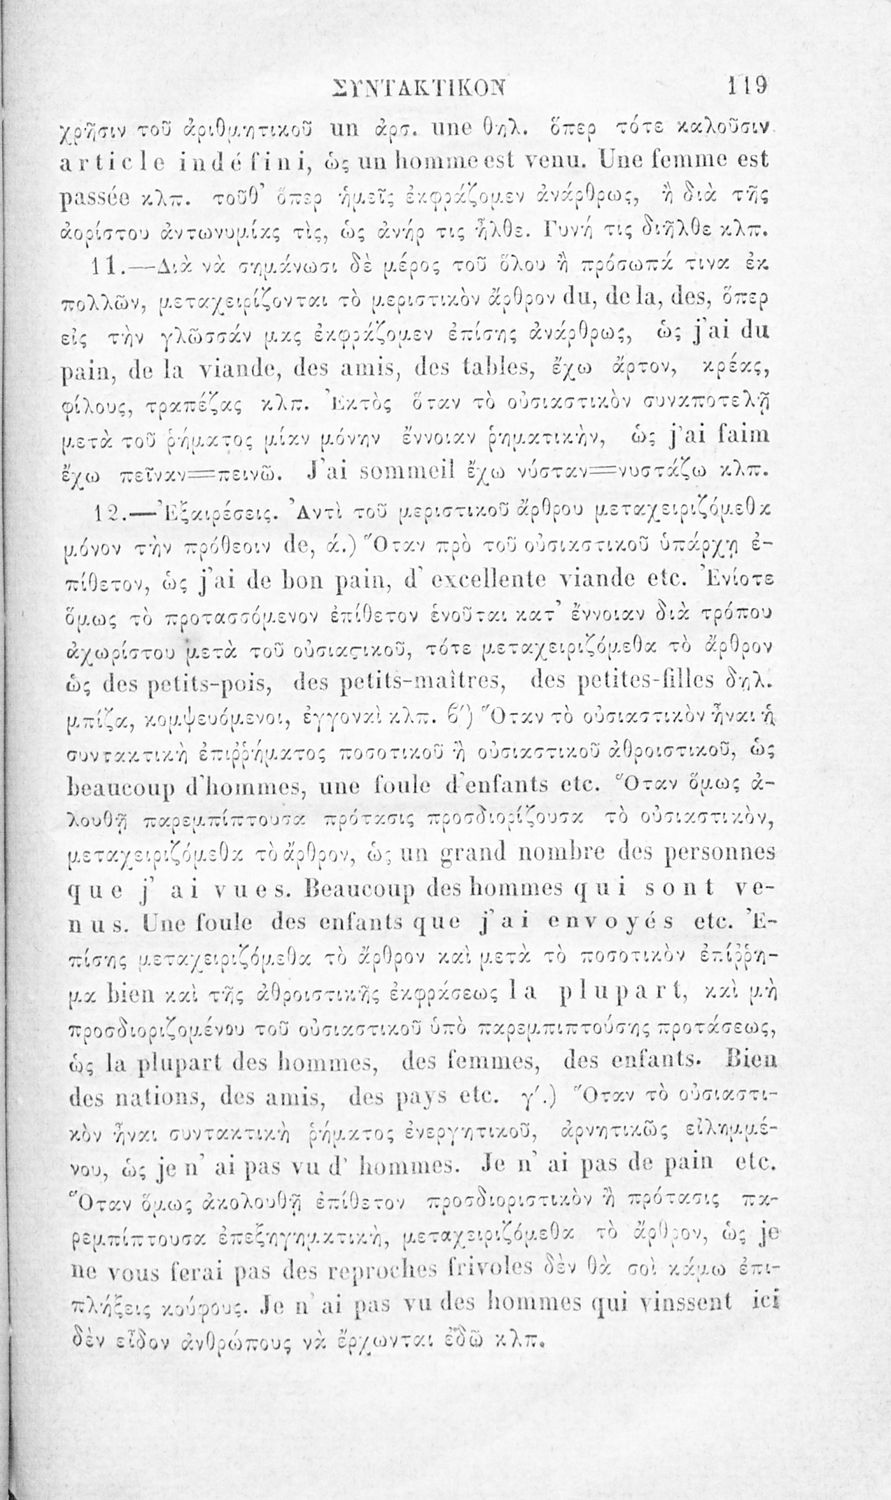 ΣΥΝΤΑΚΤΙΚΟΝ 119
χρῆσιν τοῦ ἀριθμητικοῦ un ἀρσ. une θηλ. ὅπερ τότε καλοῦσιν
article indéfini, ὡς un homme est venu. Une femme est
passée κλπ. τοῦθ' ὅπερ ἡμεῖς ἐκφράζομεν ἀνάρθρως, ἢ διὰ τῆς
ἀορίστου ἀντωνυμίας τὶς, ὡς ἀνήρ τις ἦλθε. Γυνή τις διῆλθε κλπ.
11.—Διὰ νὰ σημάνωσι δὲ μέρος τοῦ ὅλου ἢ πρόσωπά τινα ἐκ
πολλῶν, μεταχειρίζονται τὸ μεριστικὸν ἄρθρον du, de la, des, ὅπερ
εἰς τὴν γλῶσσάν μας ἐκφράζομεν ἐπίσης ἀνάρθρως, ὡς j'ai du
pain, de la viande, des amis, des tables, ἔχω ἄρτον, κρέας,
φίλους, τραπέζας κλπ. Ἐκτὸς ὅταν τὸ οὐσιαστικὸν συναποτελῇ
μετὰ τοῦ ῥήματος μίαν μόνην ἔννοιαν ῥηματικὴν, ὡς j'ai faim
ἔχω πεῖναν=πεινῶ. J'ai sommeil ἔχω νύσταν=νυστάζω κλπ.
12.—Ἐξαιρέσεις. Ἀντὶ τοῦ μεριστικοῦ ἄρθρου μεταχειριζόμεθα
μόνον τὴν πρόθεοιν de, ά.) Ὅταν πρὸ τοῦ οὐσιαστικοῦ ὑπάρχῃ ἐ-
πίθετον, ὡς j'ai de bon pain, d' excellente viande etc. Ἐνίοτε
ὅμως τὸ προτασσόμενον ἐπίθετον ἑνοῦται κατ' ἔννοιαν διὰ τρόπου
ἀχωρίστου μετὰ τοῦ οὐσιαςικοῦ, τότε μεταχειριζόμεθα τὸ ἄρθρον
ὡς des petits-pois, des petits-maîtres, des petites-filles δηλ.
μπίζα, κομψευόμενοι, ἐγγοναὶ κλπ. ϐ') Ὅταν τὸ οὐσιαστικὸν ἦναι ἡ
συντακτικὴ ἐπιῤῥήματος ποσοτικοῦ ἢ οὐσιαστικοῦ ἀθροιστικοῦ, ὡς
beaucoup d'hommes, une foule d'enfants etc. Ὅταν ὅμως ἀ-
λουθῇ παρεμπίπτουσα πρότασις προσδιορίζουσα τὸ οὐσιαστικὸν,
μεταχειριζόμεθα τὸ ἄρθρον, ὡς un grand nombre des personnes
que j' ai vues. Beaucoup des hommes qui sont ve-
nus. Une foule des enfants que j'ai envoyés etc. Ἐ-
πίσης μεταχειριζόμεθα τὸ ἄρθρον καὶ μετὰ τὸ ποσοτικὸν ἐπίῤῥη-
μα bien καὶ τῆς ἀθροιστικῆς ἐκφράσεως la plupart, καὶ μὴ
προσδιοριζομένου τοῦ οὐσιαστικοῦ ὑπὸ παρεμπιπτούσης προτάσεως,
ὡς la plupart des hommes, des femmes, des enfants. Bien
des nations, des amis, des pays etc. γ'.) Ὅταν τὸ οὐσιαστι-
κὸν ἦναι συντακτικὴ ῥήματος ἐνεργητικοῦ, ἀρνητικῶς εἰλημμέ-
νου, ὡς je n' ai pas vu d' hommes. Je n' ai pas de pain etc.
Ὅταν ὅμως ἀκολουθῇ ἐπίθετον προσδιοριστικὸν ἢ πρότασις πα-
ρεμπίπτουσα ἐπεξηγηματικὴ, μεταχειριζόμεθα τὸ ἄρθρον, ὡς je
ne vous ferai pas des reproches frivoles δὲν θὰ σοὶ κάμω ἐπι-
πλήξεις κούφους. Je n' ai pas vu des hommes qui vinssent ici
δὲν εἶδον ἀνθρώπους νὰ ἔρχωνται ἐδῶ κλπ.